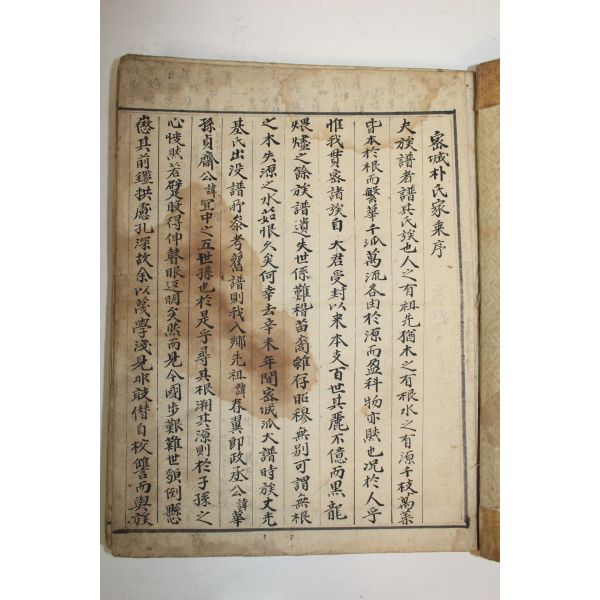 密城朴氏家乘序
夫族譜者譜其氏族也人之有祖先猶木之有根水之有源千枝萬葉
皆本於根而繁華千泒萬流各由於源而盈科物亦賕也况於人乎
惟我貫密諸族自 大君受封以来本支百世其麗不億而黒龍
煨燼之餘族譜遺失世係難稽苗裔雖存昭穆無別可謂無根
之木失源之水茹恨久矣何幸去辛未年間密城泒大譜時族丈光
基氏出没譜所叅考舊譜則我入鄉先祖諱春翼即政丞公諱華
孫貞齋公諱冝中之五世孫也於是乎尋其根溯其源則於子孫之
心快賕若躄股得伸瞽眼返明矣賕而見今國步艱難世頟倒懸
懲其前鑑拱慮孔深故余以蔑學淺見非敢僣自校讐而與族